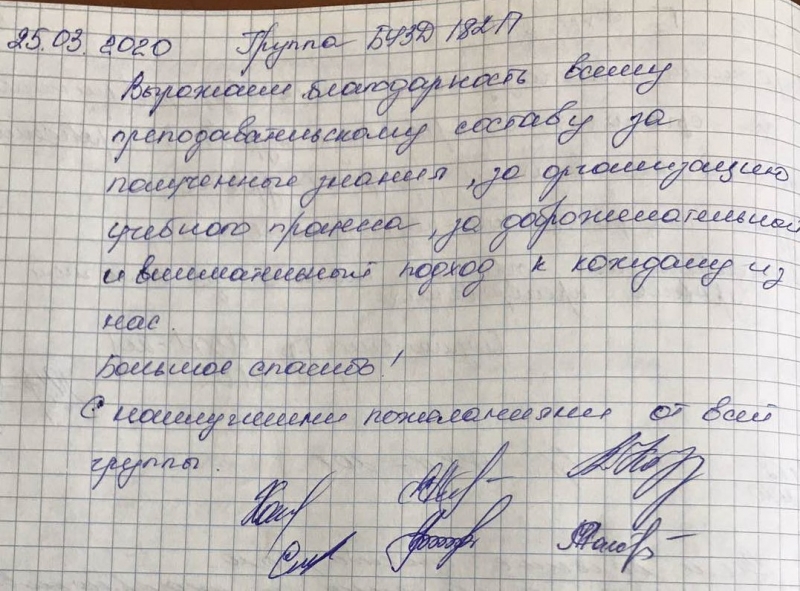 25.03.2020 Группа БУЗД 182П
Выражаем благодарность всему
преподавательскому составу за
полученные знания, за организацию
учебного процесса, за доброжелательный
и внимательный подход к каждому из
нас.
Большое спасибо!
С наилучшими пожеланиями от всей
группы.